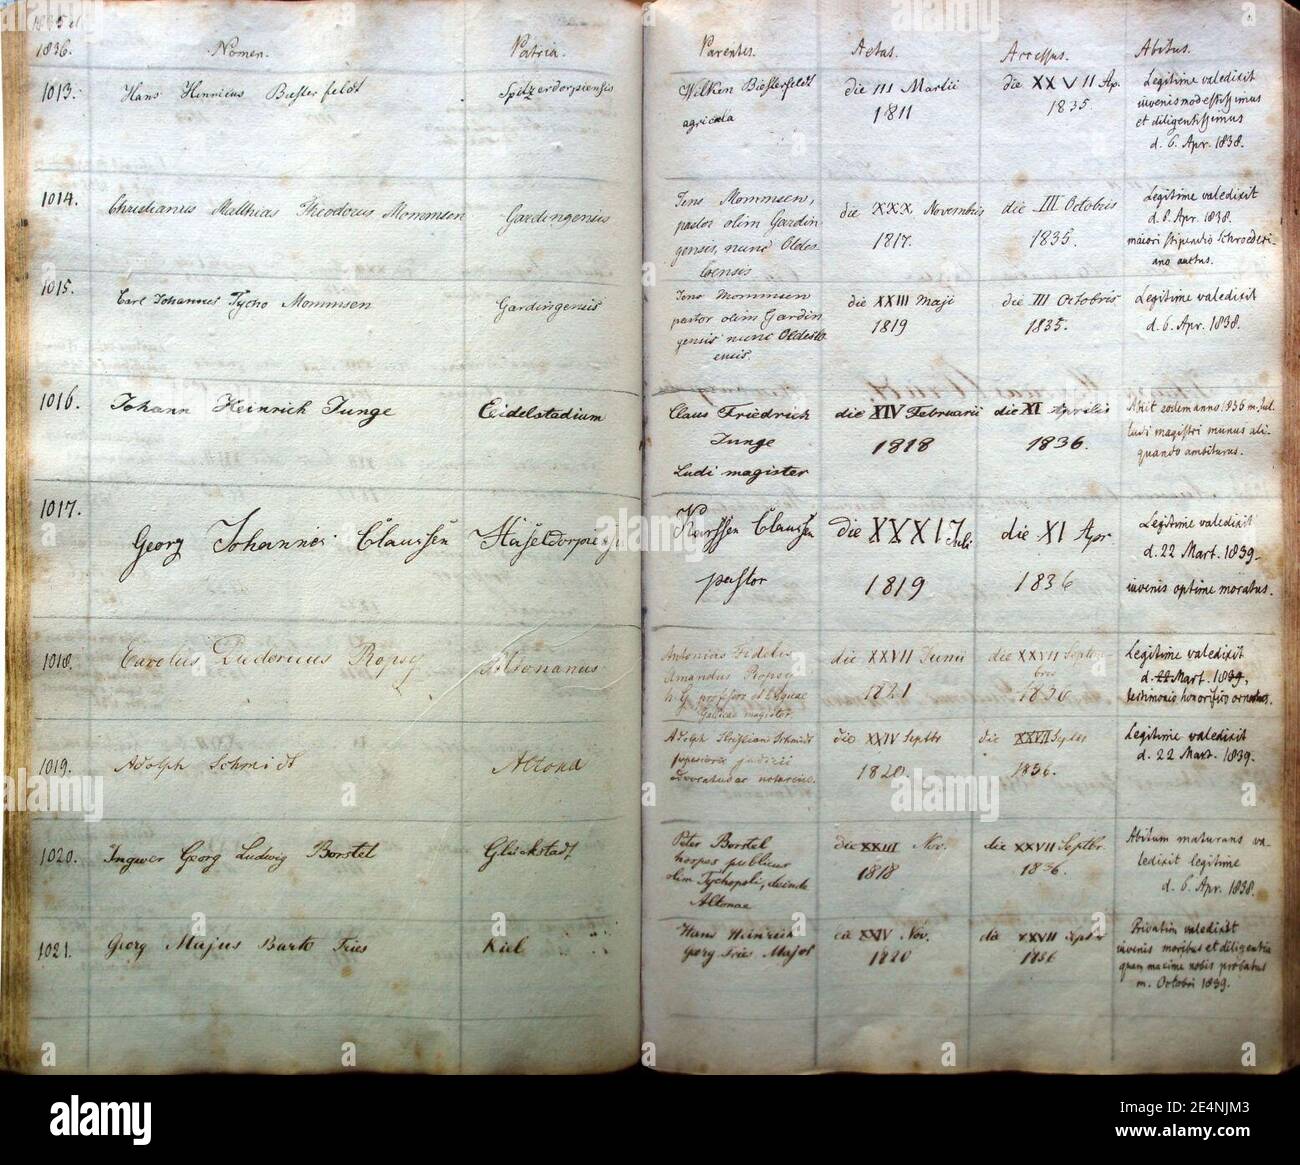 1835 et
1836. Nomen. Patria. Parentes. Aetas. Accessus. Abitus.
1013. Hans Hinricus Biesterfeldt Spitzerdorpiensis
Wilken Biesterfeldt
agricola
die III Martii
1811
die XXVII Ap.
1835
Legitime valedixit
iuvenis modestissimus
et diligentissimus
d. 6. Apr. 1838.
1014. Christianus Matthias Theodorus Mommsen Gardingensis
Jens Mommsen,
pastor olim Gardin
gensis, nunc Oldes
loensis
die XXX Novembris
1817.
die III Octobris
1835.
Legitime valedixit
d. 8. Apr. 1838.
maiori stipendio Schroederi-
ano auctus.
1015. Carl Johannes Tycho Mommsen Gardingensis
Jens Mommsen
pastor olim Gardin
gensis nunc Oldeslo
ensis.
die XXIII Maji
1819
die III Octobris
1835.
Legitime valedixit
d. 6. Apr. 1838.
1016. Johann Heinrich Junge Eidelstadium
Claus Friedrich
Junge
Ludi magister
die XIV Februarii
1818
die XI Aprilis
1836.
Abiit 1836 m. Jul.
ludi magistri munus ali-
quando ambiturus.
1017. Georg Johannes Claussen Haseldorpiensis
Karssen Claussen
pastor
die XXXI Juli
1819
die XI Apr
1836
Legitime valedixit
d. 22 Mart. 1839.
iuvenis optime moratus.
1018. Carolus Ludovicus Ropsy Altonanus
Antonius Fidelis
Amandus Ropsy
professor et linguae
Gallicae magister
die XXVII Junii
1821
die XXVII Septem-
bris
1836
Legitime valedixit
d. 22 Mart. 1839,
testimonio honorifico ornatus.
1019. Adolph Schmidt Altona
Adolph Christian Schmidt
superioris judicii
advocatus ac notarius.
die XXIV Septbr
1820.
die XXVII Septbr
1836.
Legitime valedixit
d. 22 Mart. 1839.
1020. Ingwer Georg Ludwig Borstel Glückstadt
Peter Borstel
hospes publicus
olim Tychopoli, deinde
Altonae
die XXIII Nov.
1818
die XXVII Septbr.
1836.
Abitum maturans va-
ledixit legitime
d. 6. Apr. 1838.
1021. Georg Majus Bartho Fries Kiel
Hans Heinrich
Georg Fries Major
die XXIV Nov.
1820
die XXVII Septbr
1836
Privatim valedixit
iuvenis moribus et diligentia
quam maxime nobis probatus
m. Octobri 1839.
alamy
Image ID: 2E4NJM3
www.alamy.com